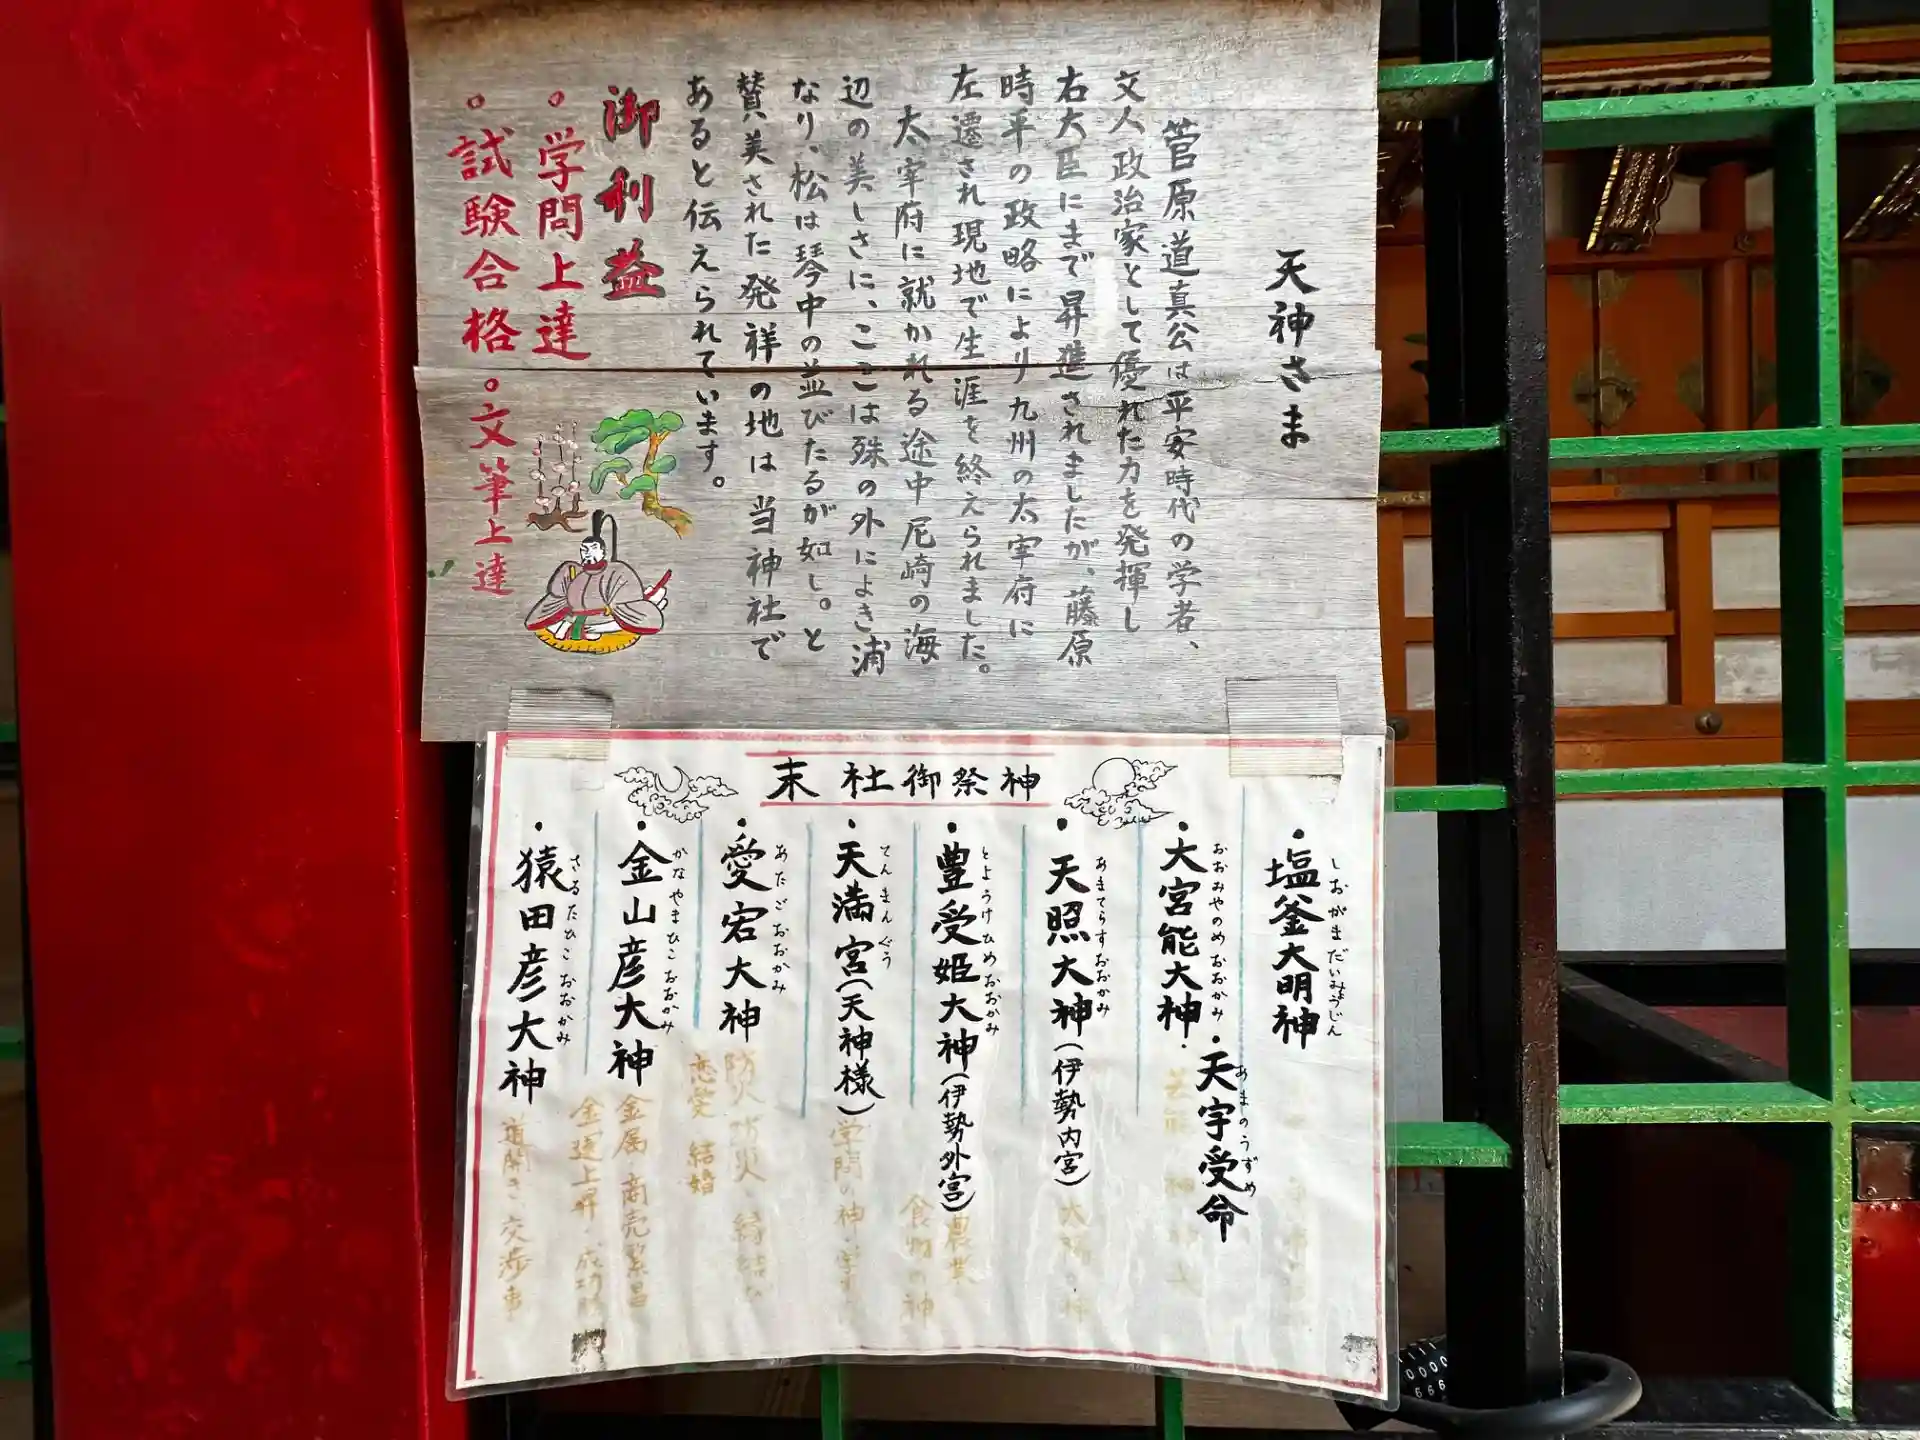 天神さま
菅原道真公は平安時代の学者、
文人政治家として優れた力を発揮し
右大臣にまで昇進されましたが、藤原
時平の政略により九州の太宰府に
左遷され現地で生涯を終えられました。
太宰府に就かれる途中尼崎の海
辺の美しさに、ここは殊の外によき浦
なり、松は琴中の並びたるが如し。と
賛美された発祥の地は当神社で
あると伝えられています。
御利益
◦学問上達
◦試験合格
◦文筆上達
末社御祭神
・塩釜大明神
しおがまだいみょうじん
・大宮能大神
おおみやのめおおかみ
・天宇受命
あまのうずめ
芸能
・天照大神(伊勢内宮)
あまてらすおおかみ
・豊受姫大神(伊勢外宮)
とようけひめおおかみ
農業
食物の神
・天満宮(天神様)
てんまんぐう
学問の神
・愛宕大神
あたごおおかみ
防火 防災
恋愛 結婚
・金山彦大神
かなやまひこおおかみ
金属 商売繁昌
金運上昇・成功
・猿田彦大神
さるたひこおおかみ
道開き・交